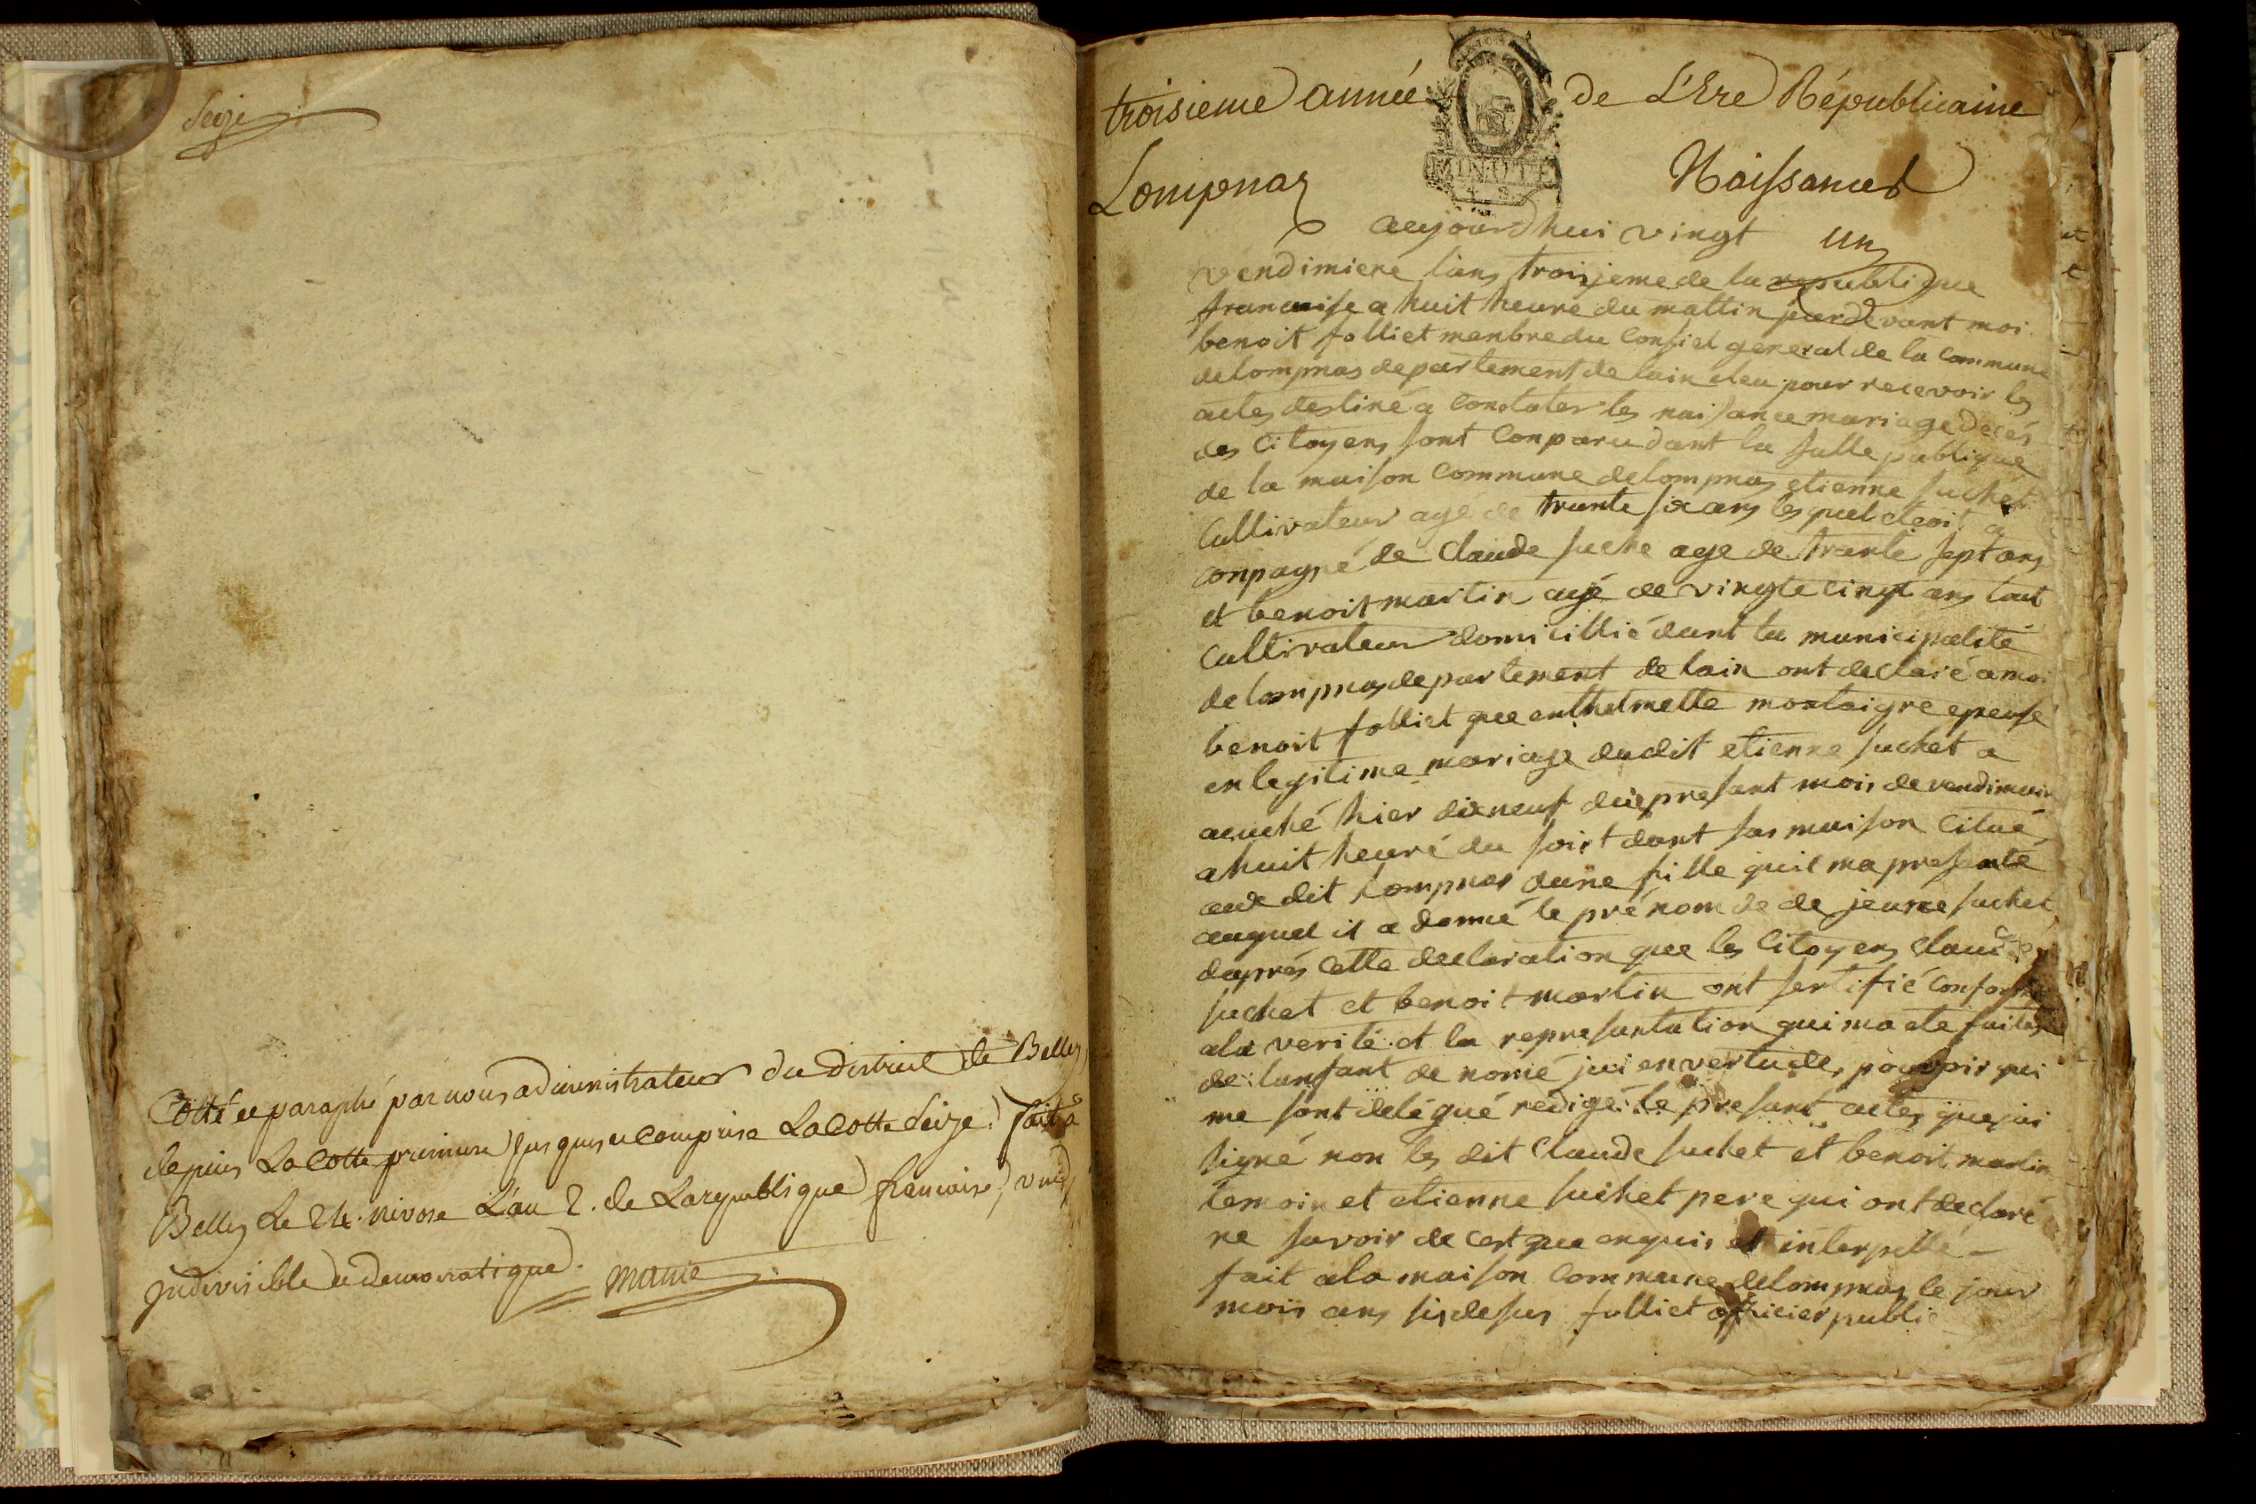 Seize
Cotté et paraphé par nous administrateur du District de Belley
depuis La Cotte premiere jusques et comprise La Cotte Seize. fait à
Belley le 24. nivose L'an 2. de La republique francaise, une
Indivisible et democratique.
troisieme année de L'Ere Républicaine
MINUTE
Lompnaz Naissances
aujourdhui vingt un
vendimiere lans troisjeme de la republique
francaise a huit heure du mattin pardevant moi
benoit folliet menbre du Consiel general de la Commune
delompnas departement de lain eleu pour recevoir les
actes destiné a Constater les naisance mariage decés
des Citoyens sont Conparu dant la salle publique
de la maison Commune delompnas etienne suchet
Cultivateur agé de trante six ans les quel etoit a
conpagné de Claude suche age de trante sept ans
et benoit martin agé de vingte cinqt ans tout
Cultivateur domicillié dant la municipalité
de lompnas departement de lain ont declaré a moi
benoit folliet que anthelmette montaigre epouse
en legitime mariage dudit etienne suchet a
acuché hier dix neuf du present mois de vendimiair
a huit heuré du soirt dant sas maison Citué
aude dit Lompnas dune fille quil ma presanté
auquel it a donné le prénom de de jeune suchet
daprés cette declaration que les Citoyens Claude
suchet et benoit martin ont sertifié Conforme
ala verité et la represantation qui ma ete faites
de lanfant de nomé jai en vertu de, pouvoir qui
me sont delégué rédigé le presant actes que jai
signé non les dit Claude suchet et benoit martin
temoin et etienne suchet pere qui ont declaré
ne savoir de cest que enquis et interpellé -
fait ala maison Commune delompnas le jour
mois ans sis desus folliet officier public